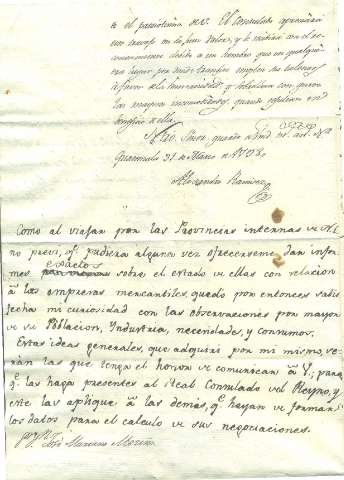 à el patriotismo de V. El Consulado apreciará
este trabajo en su justo valor, y lo mirará con el re-
conocimiento debido a un hombre que en qualquie-
ra lugar
à favor de la humanidad, y
las mayores incomodidades quando
beneficio de ella.
Nuestro Señor guarde a Vmd ms. as.
Guatemala 31 de Marzo de 1803.
Alexandro Ramirez
Como al viajar por las Provincias internas de
no previ, q.e pudiera alguna vez ofrecerseme dar infor-
mes exactos sobre el estado de ellas con relacion
â las empresas mercantiles, quedó por entonces satis
fecha mi curiosidad con las observaciones por mayor
de su Poblacion, Industria, necesidades, y consumos.
Estas ideas generales, que adquirí por mi mismo, se-
rán las que tenga el honor de comunicar â V.; para
q.e las haga presentes al Real Consulado del Reyno, y
este las aplique â las demás, q.e hayan de formar
los datos para el calculo de sus negociaciones.
José Mariano Moziño